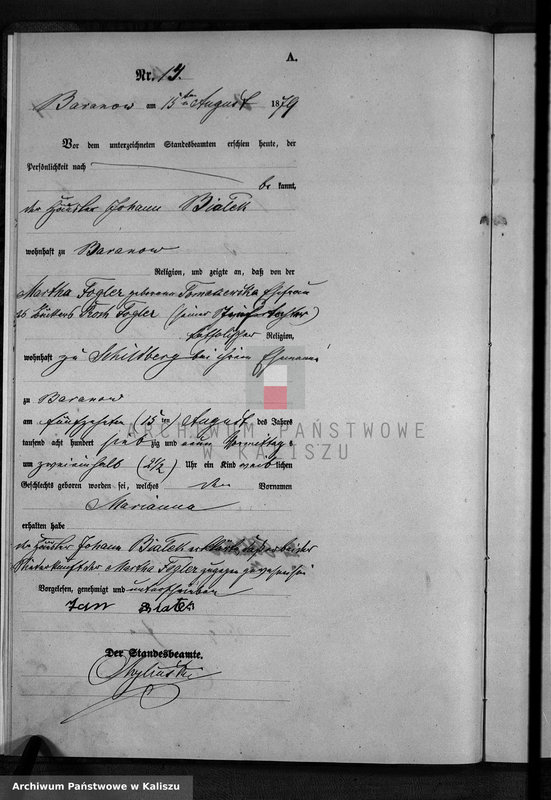 A.
Nr. 13.
Baranow am 15ten August 1879
Vor dem unterzeichneten Standesbeamten erschien heute, der
Persönlichkeit nach
be kannt,
der Häusler Johann Bialek
wohnhaft zu Baranow
Religion, und zeigte an, daß von der
Martha Fogler geborene Ehefrau
des Bäckers Fogler (seiner Stieftochter)
katholischer Religion,
wohnhaft zu Schildberg bei ihrem Ehemanne
zu Baranow
am fünfzehnten (15ten) August des Jahres
tausend acht hundert sieb zig und neun Vormittags
um zweieinhalb (2½) Uhr ein Kind weib lichen
Geschlechts geboren worden sei, welches den Vornamen
Marianna
erhalten habe
der Häusler Johann Bialek erklärte daß er bei der
Niederkunft der Martha Fogler zugegen gewesen sei
Vorgelesen, genehmigt und unterschrieben
Jan Białek
Der Standesbeamte.
ARCHIWUM PAŃSTWOWE
W KALISZU
Archiwum Państwowe w Kaliszu